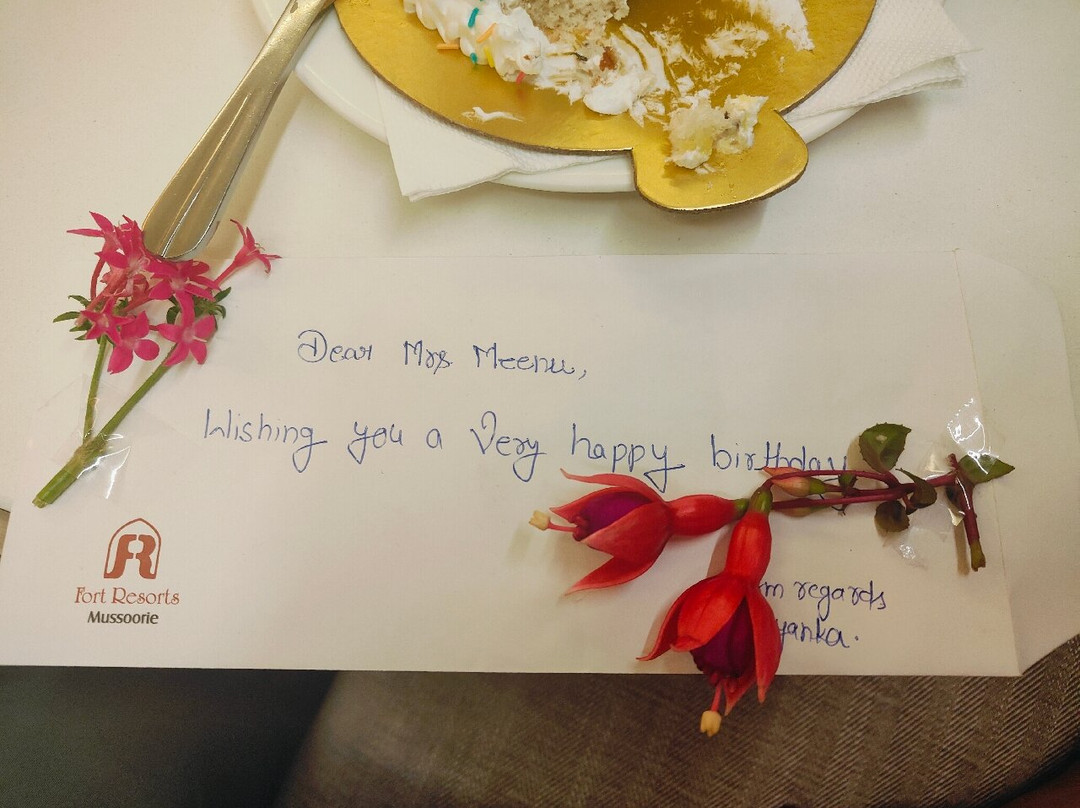 Dear Mrs. Meenu,
Wishing you a Very happy birthday
regards
FR
Fort Resorts
Mussoorie